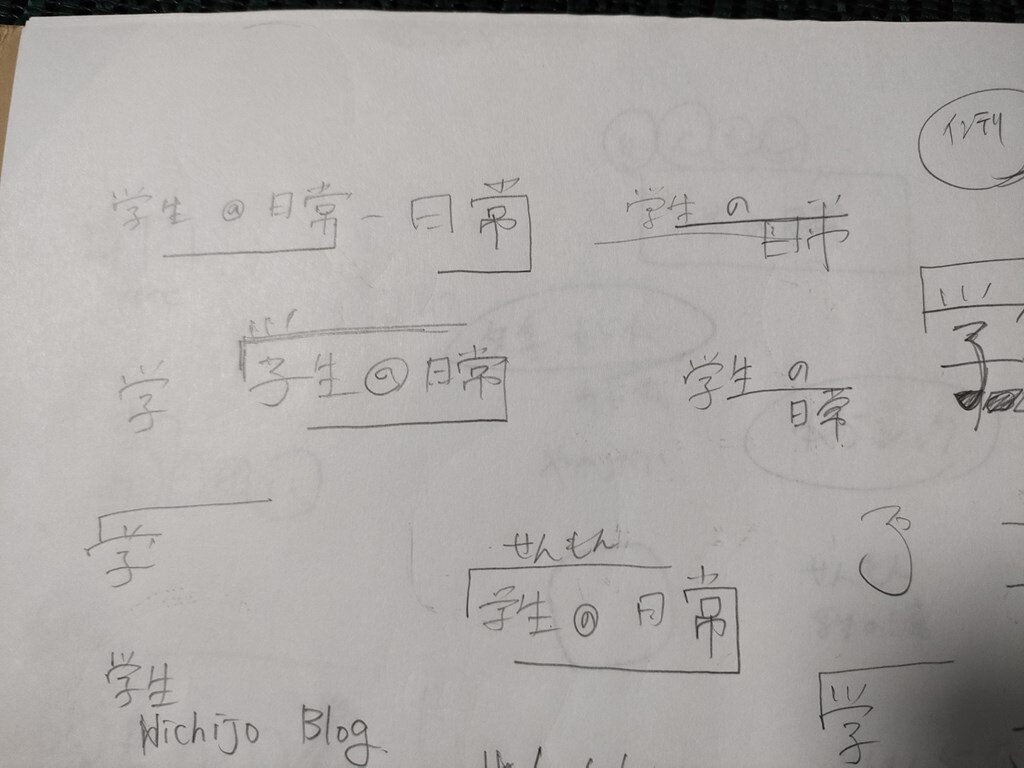 インテリ
学生 の 日常 - 日常
学生 の 日常
学
学生 の 日常
学生 の
日常
学
学
せんもん
学生 の 日常
学生
学
Nichijo Blog